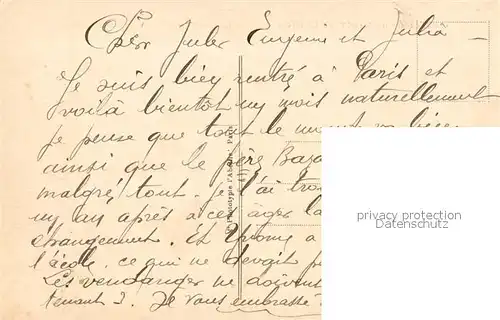 Cher Jules Eugene et Julia
Je suis bien rentré à Paris et
voilà bientôt un mois naturellement
je pense que tout le monde va bien
ainsi que le père
malgré tout. je l'ai
un an après a cet âge la
changement. Et Yvonne a
l'école. ce qui ne devait
Les vendanges ne doivent
tenant ? Je vous embrasse
Phototypie l'Abeille Paris
privacy protection
Datenschutz